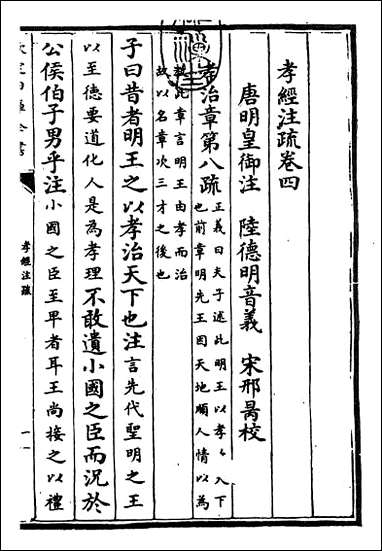 孝經注疏卷四
唐明皇御注　陸德明音義　宋邢昺校
孝治章第八疏正義曰夫子述此明王以孝
也前章明先王因天地順人情以為
教此章言明王由孝而治
故以名章次三才之後也
子曰昔者明王之以孝治天下也注言先代聖明之王
以至德要道化人是為孝理不敢遺小國之臣而況於
公侯伯子男乎注小國之臣至卑者耳王尚接之以禮
孝經注疏
一